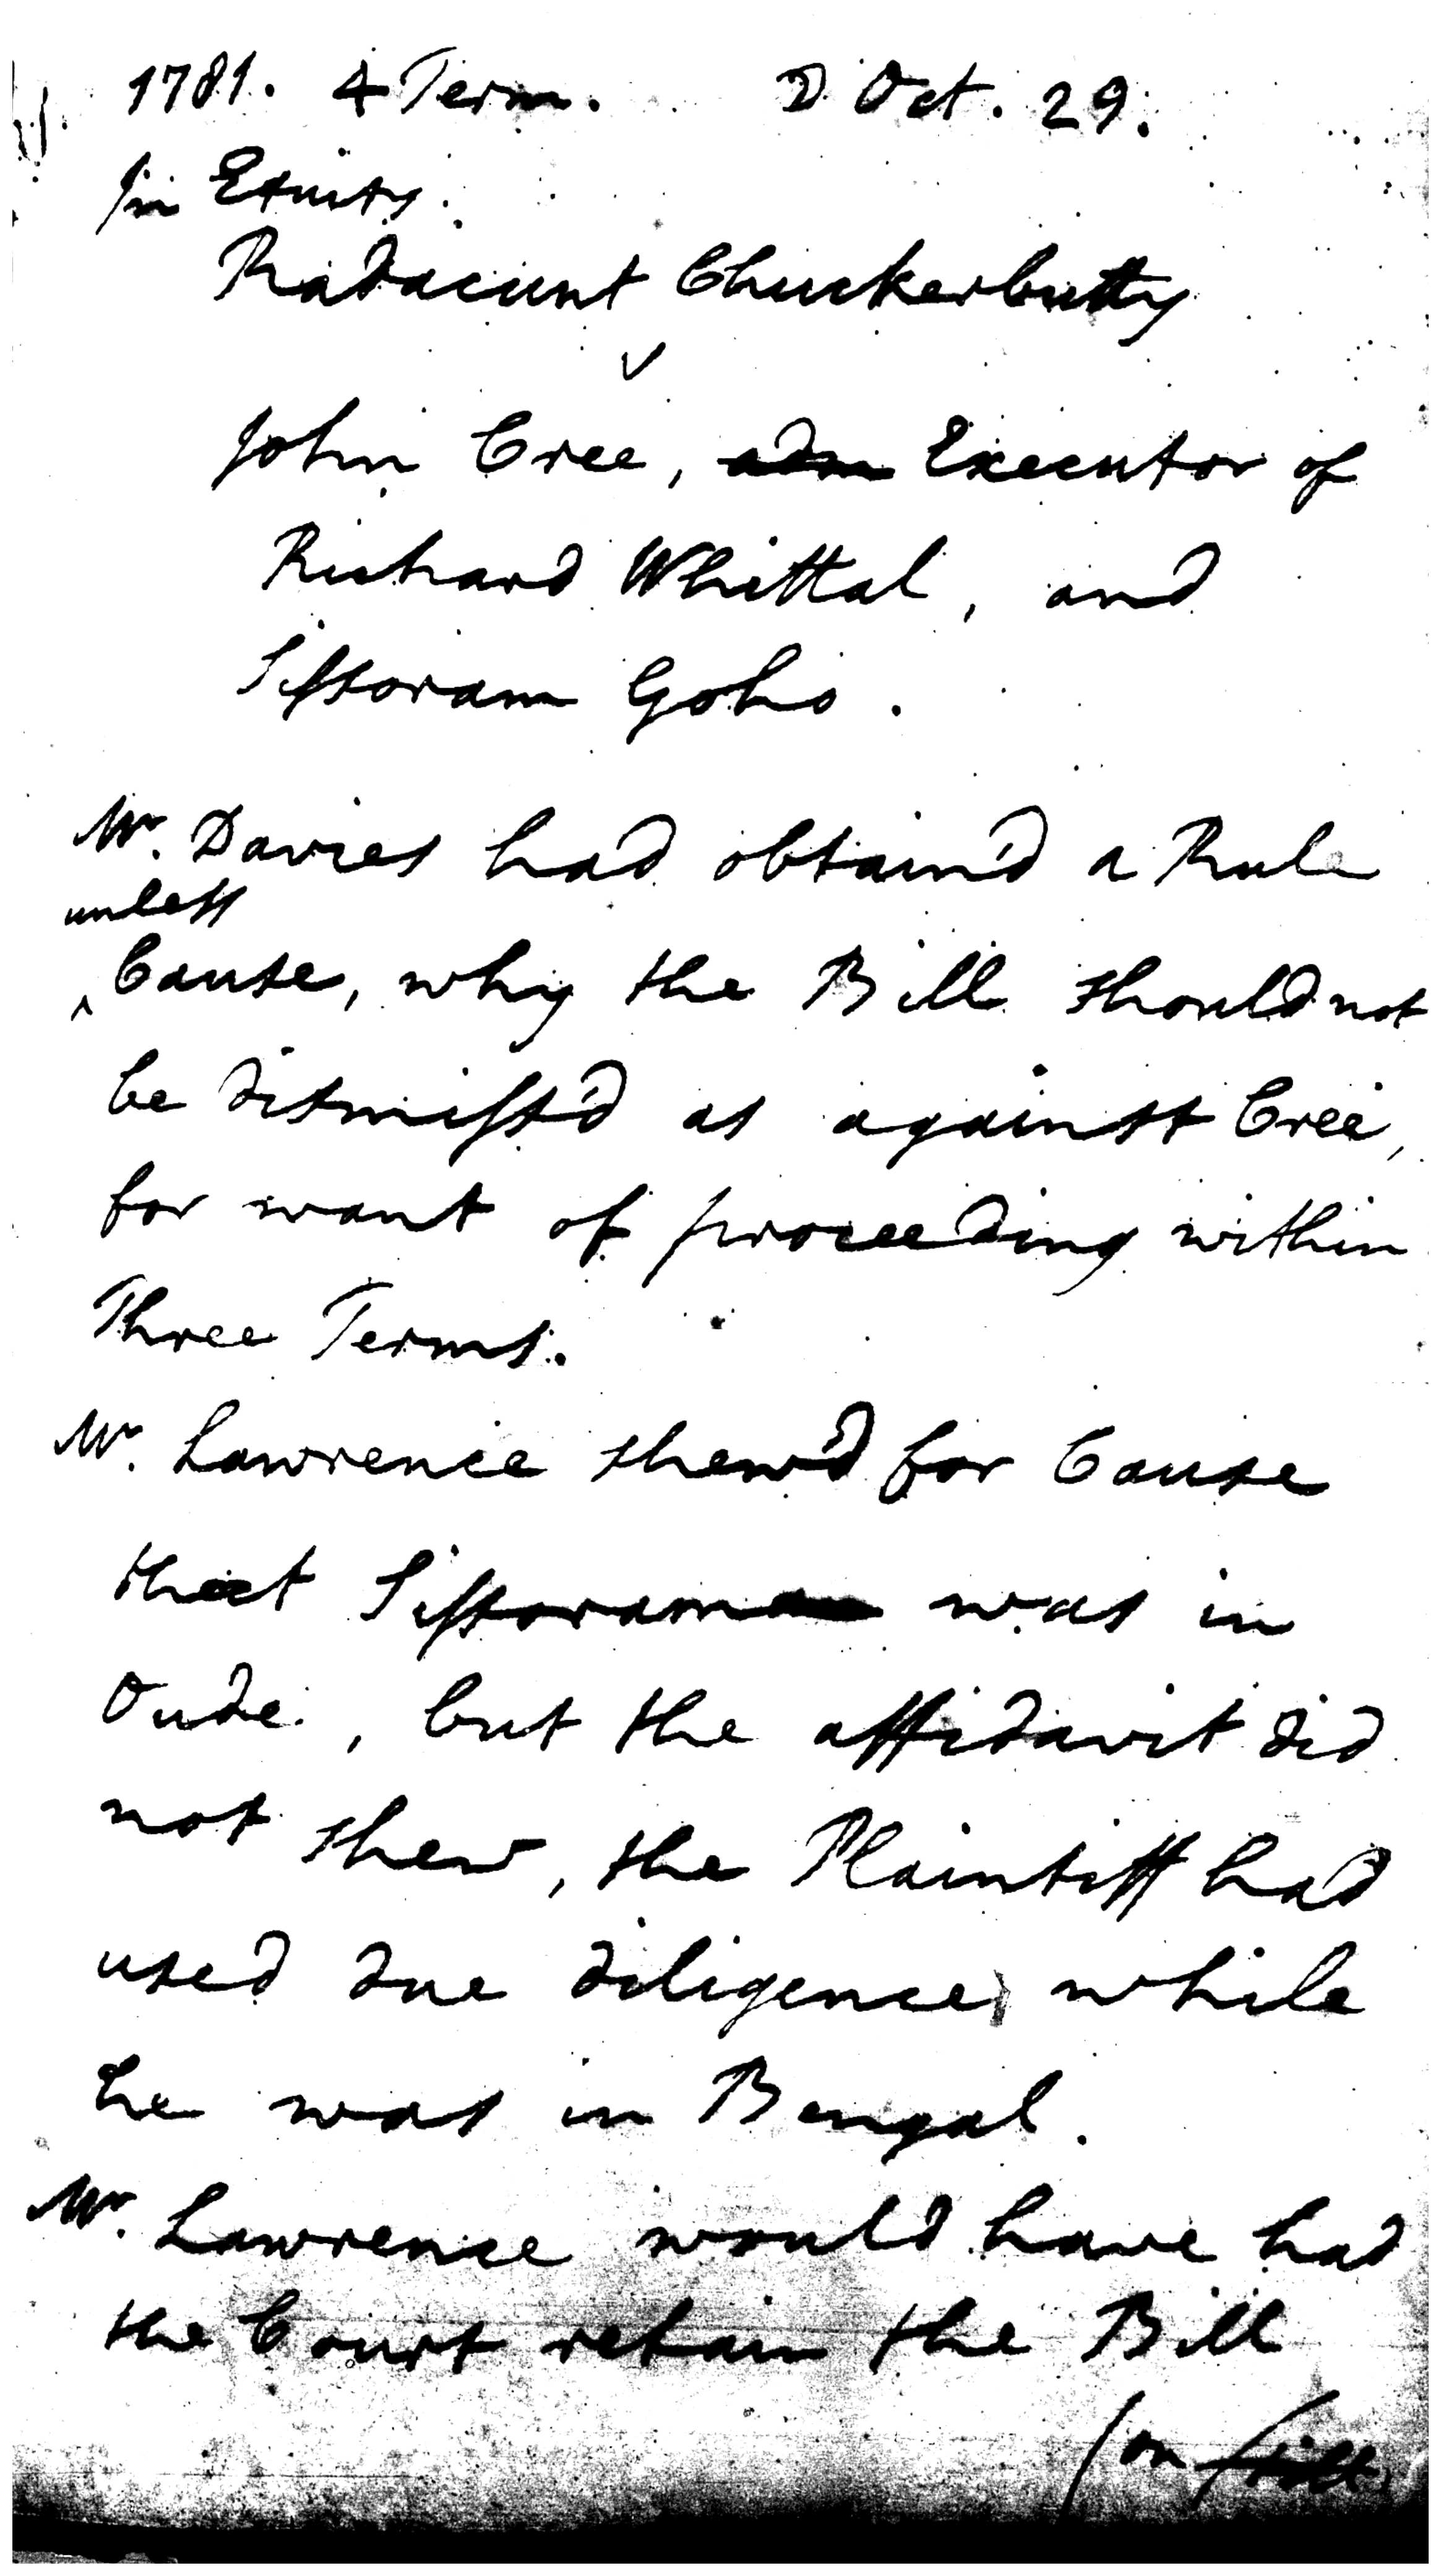 1781. 4 Term. ☽ Oct. 29.
In Equity.
Radacunt Chuckerbutty
v
John Cree, adm Executor of
Richard Whittal, and
Sissoram Goho.
Mr. Davies had obtain'd a Rule
unless
^ Cause, why the Bill should not
be dismiss'd as against Cree,
for want of proceeding within
Three Terms.
Mr. Lawrence shew'd for Cause
that Sissoram was in
Oude, but the affidavit did
not shew, the Plaintiff had
used due diligence, while
he was in Bengal.
Mr. Lawrence would have had
the Court retain the Bill
(on